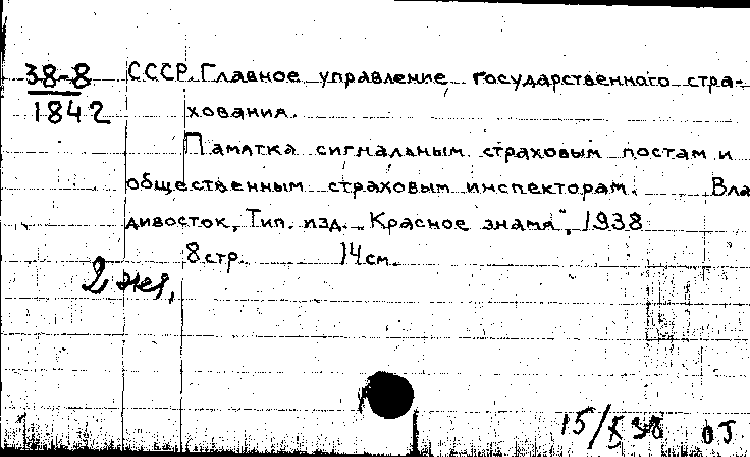 38-8 СССР. Главное управление государственного стра-
1842 хования.
Памятка сигнальным страховым постам и
общественным страховым инспекторам. Вла
дивосток, Тип. изд. „Красное знамя", 1938
8 стр. 14 см.
2 экз.
15/